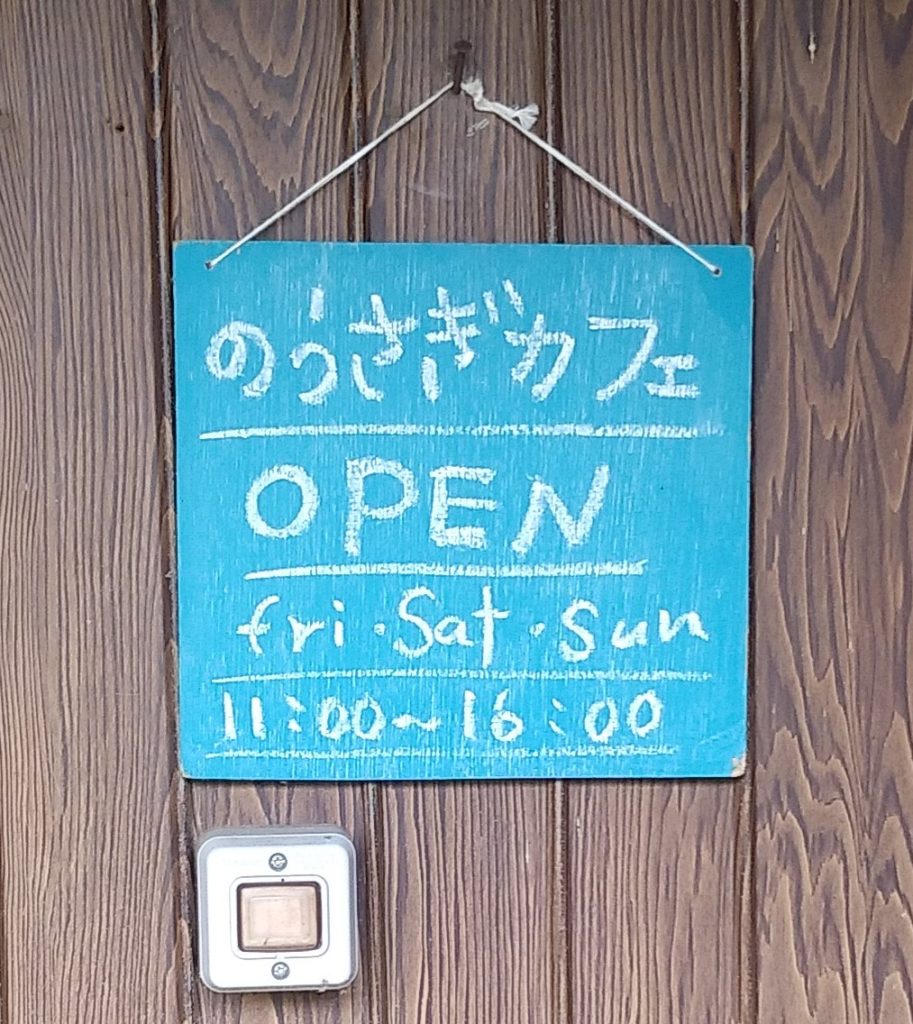 のうさぎカフェ
OPEN
fri・Sat・Sun
11:00~16:00